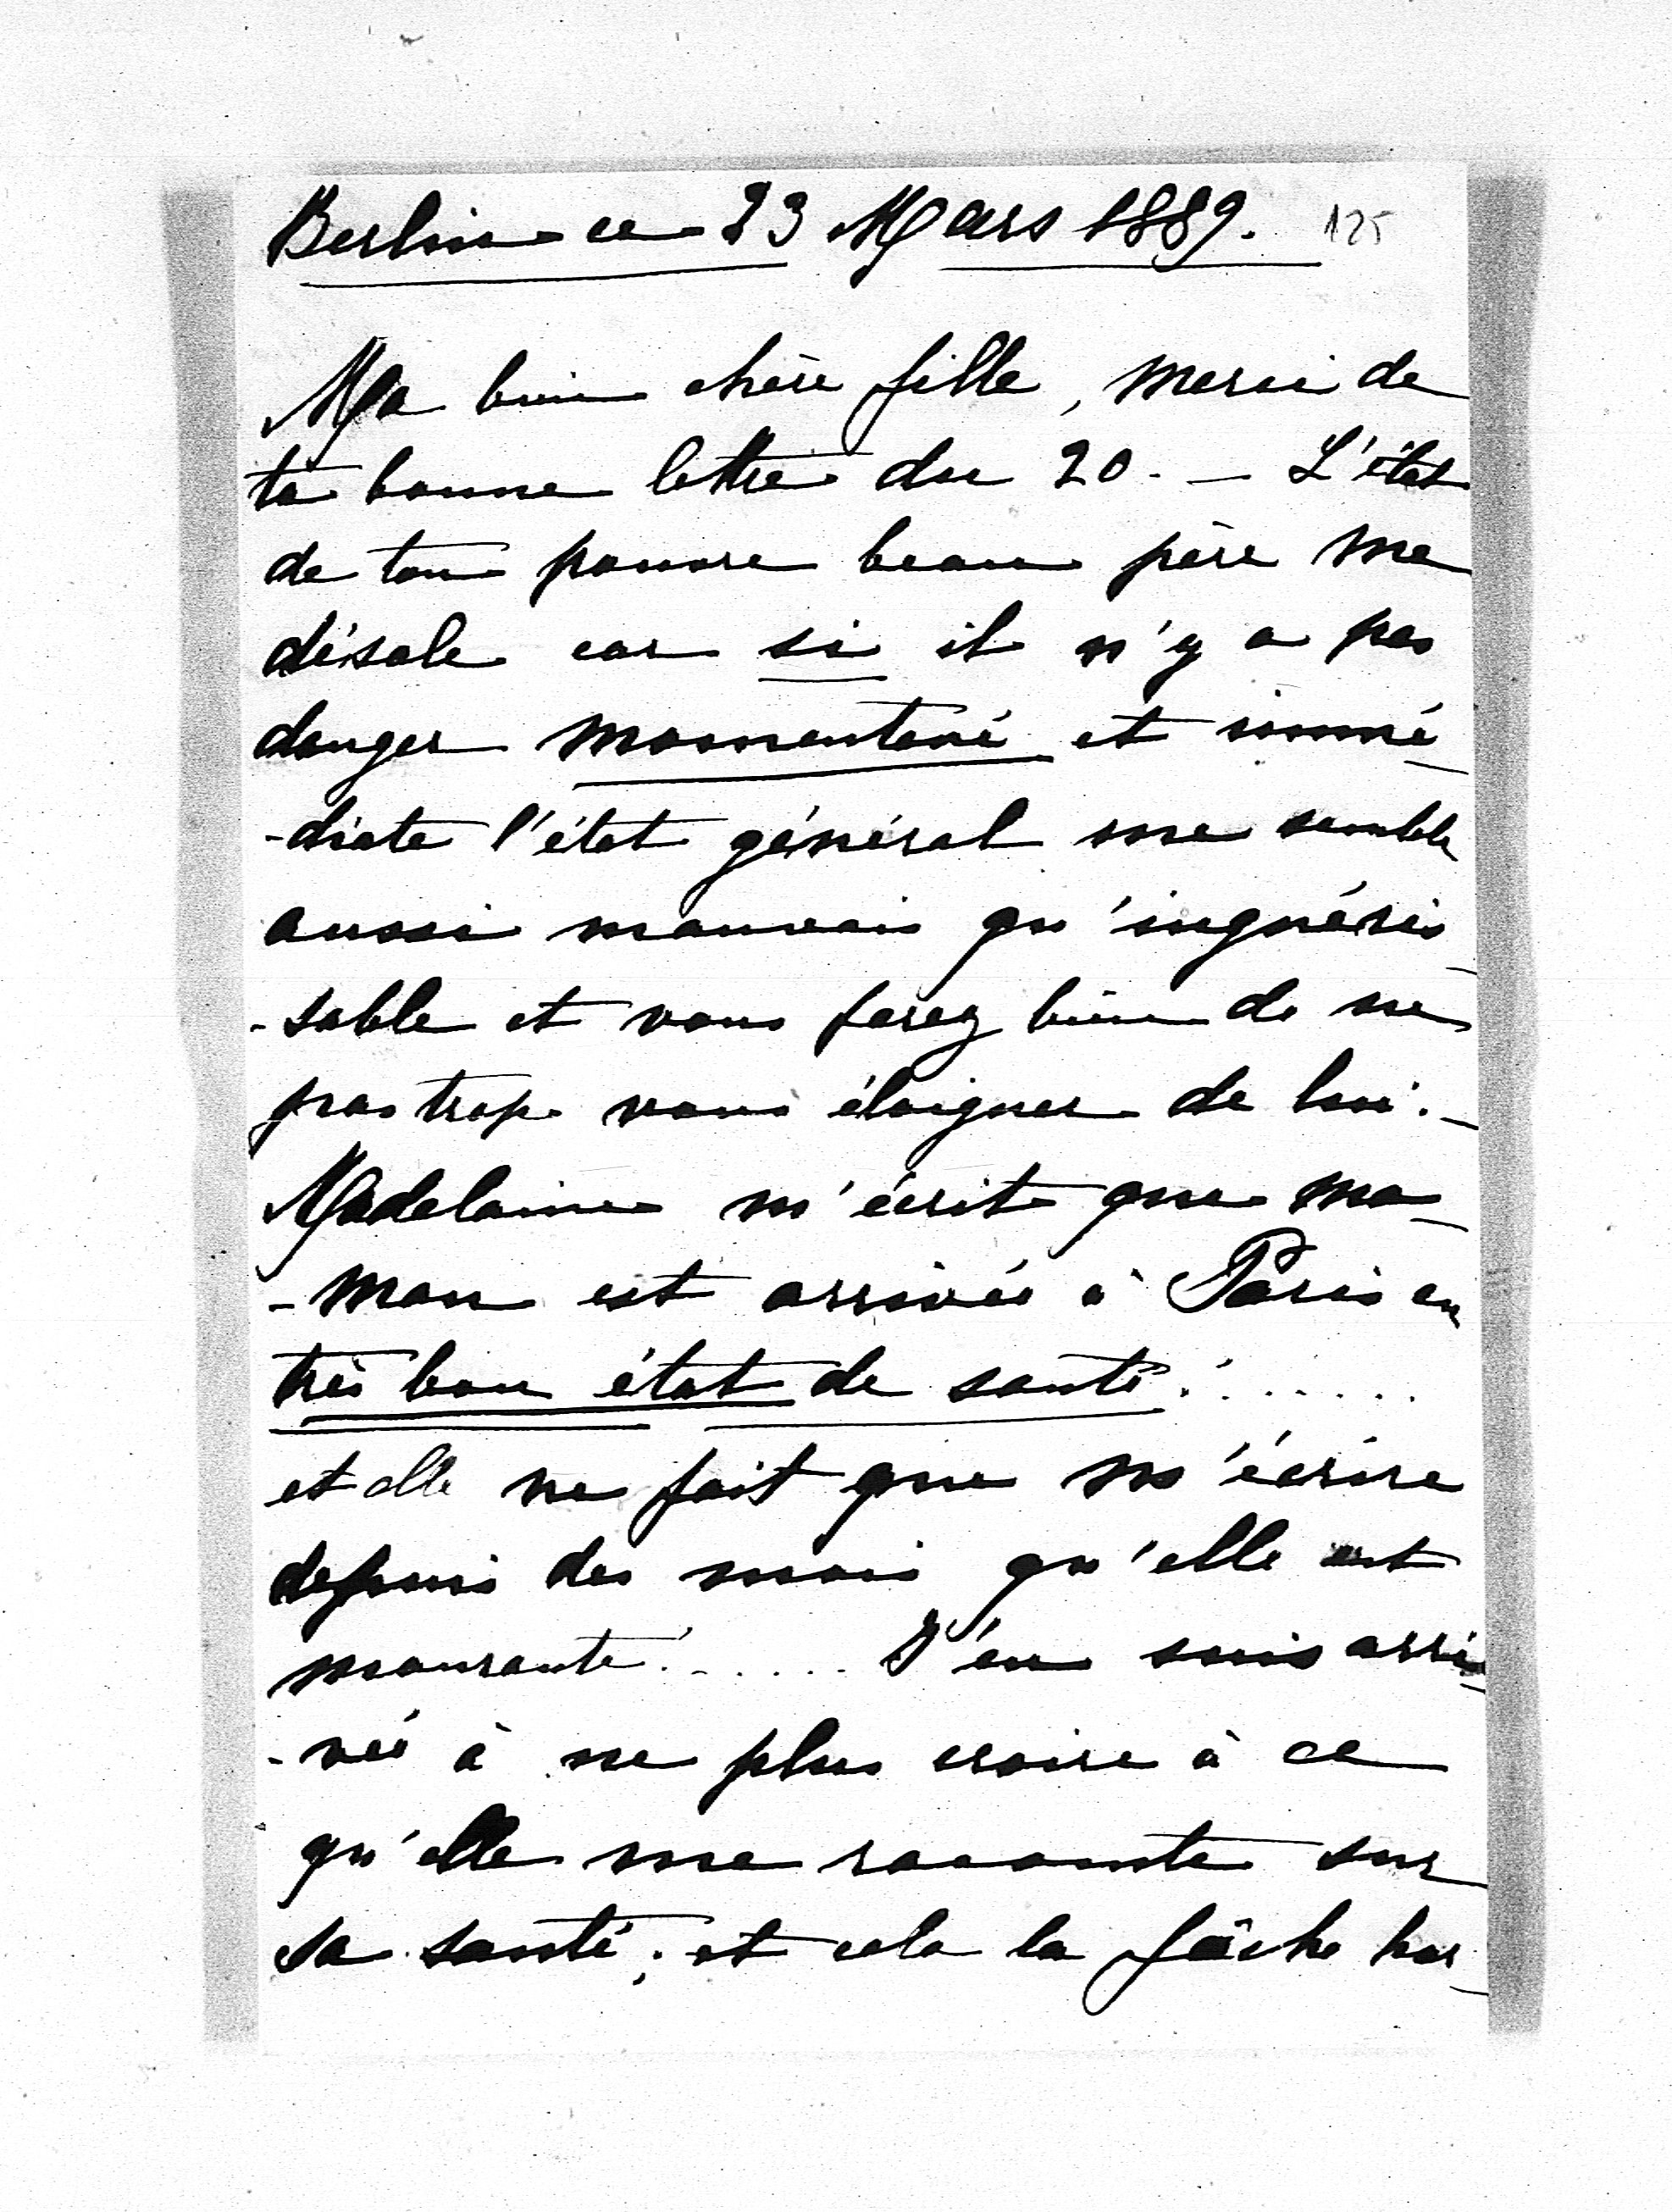 Berlin ce 23 Mars 1889. 125
Ma bien chère fille, merci de
ta bonne lettre du 20. — L'état
de ton pauvre beau père me
désole car si il n'y a pas
danger momentané et immé
-diate l'état général me semble
aussi mauvais qu'inguéris
-sable et vous ferez bien de ne
pas trop vous éloigner de lui. —
Madelaine m'écrit que ma-
-man est arrivée à Paris en
très bon état de santé!.......
et elle ne fait que m'écrire
depuis des mois qu'elle est
mourante!...... J'en suis arri-
-vée à ne plus croire à ce
qu'elle me raconte sur
sa santé; et cela la fâche hor-